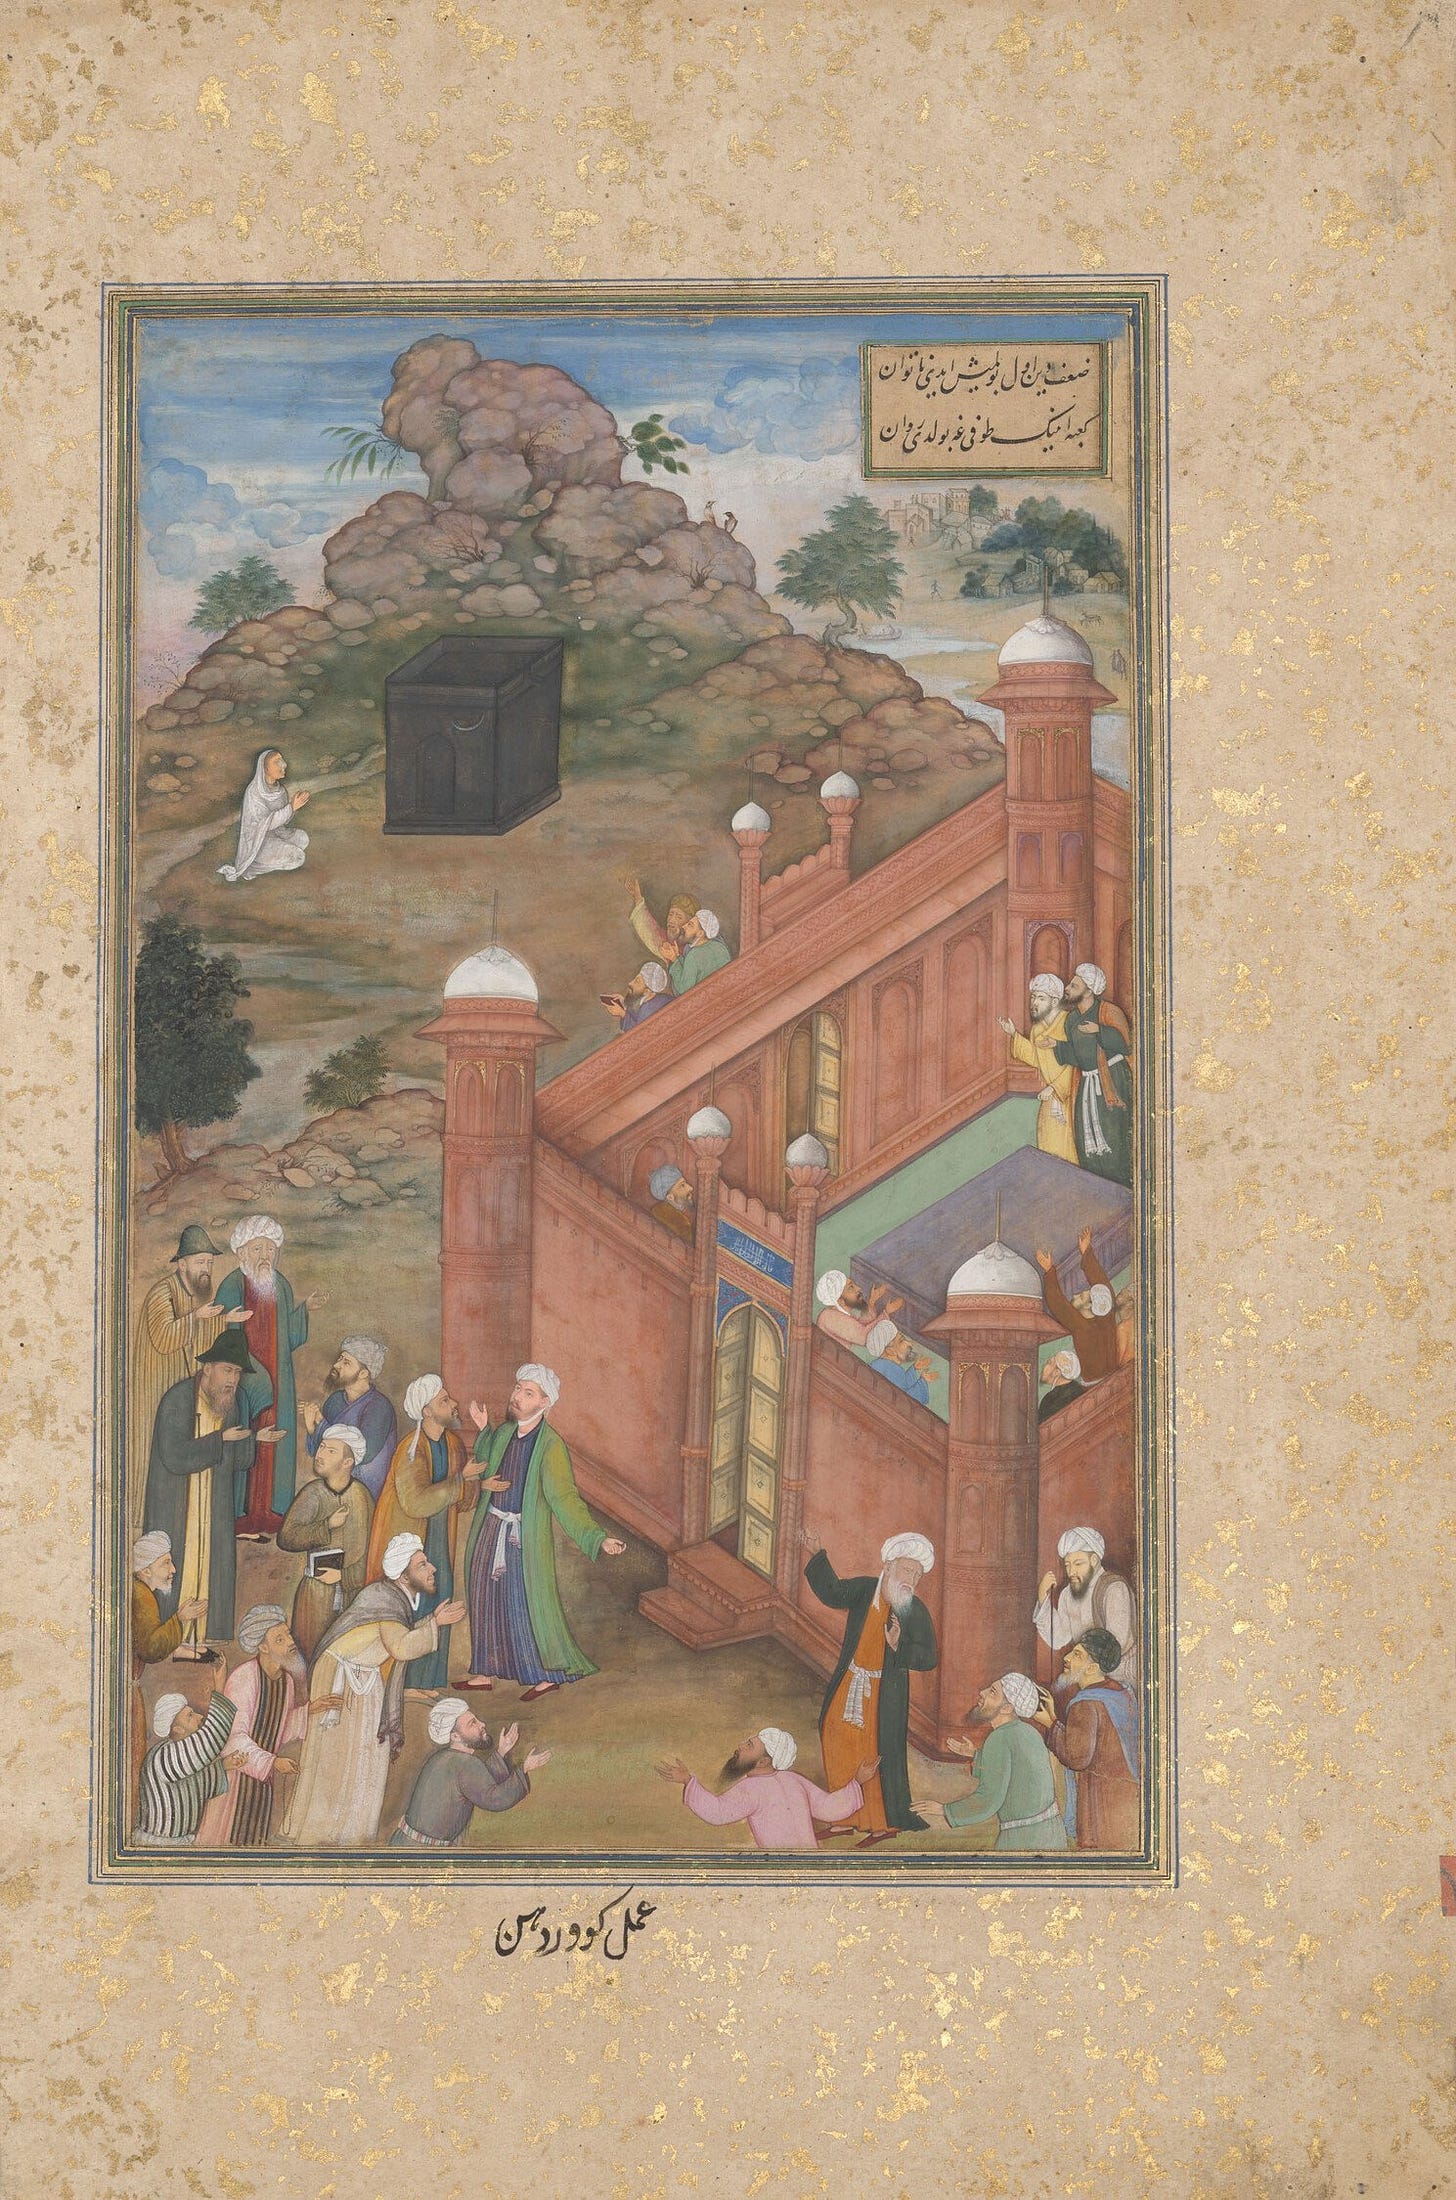 ضعف دین اول بولمیش ایدی ناتوان
کعبه انینک طوفی غه بولدی روان
عمل کووردهن